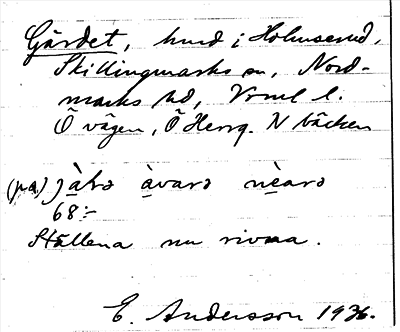 Gärdet, hmd i Holmserud,
Skillingmarks sn, Nord-
marks hd, Vrml l.
Ö vägen, Ö Herrg. N bäcken
(på) jàƚɘ àvarɘ nèarɘ
68:-
Ställena nu rivna.
E. Andersson 1936.